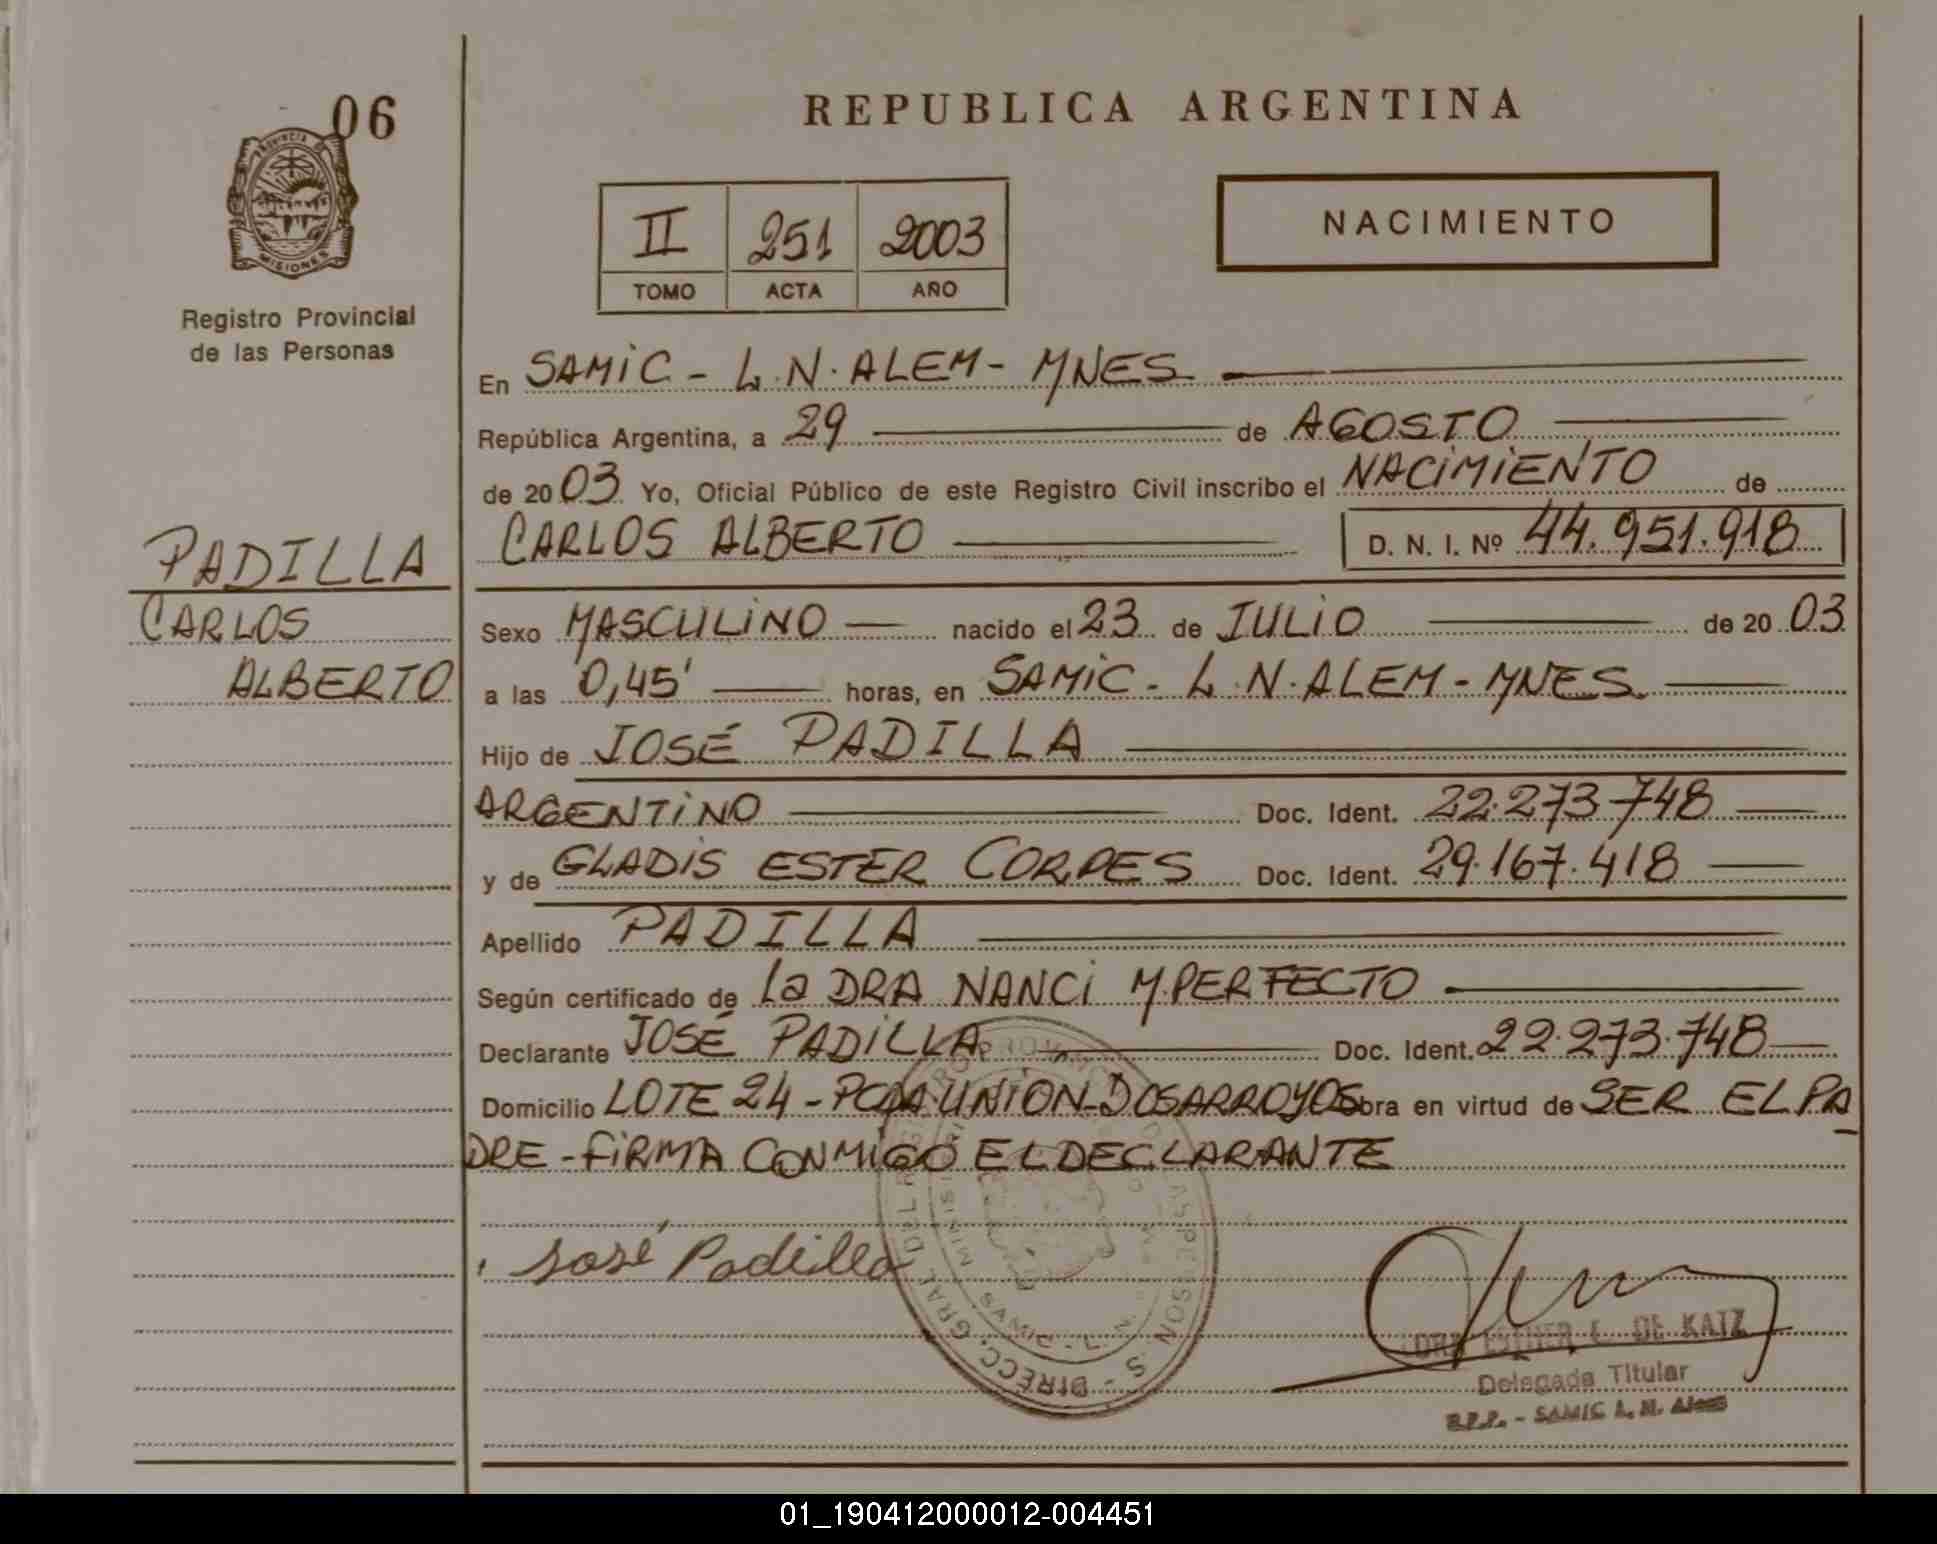 06
PROVINCIA DE
MISIONES
Registro Provincial
de las Personas
PADILLA
CARLOS
ALBERTO
REPUBLICA ARGENTINA
II 251 2003
TOMO ACTA AÑO
NACIMIENTO
En SAMiC - L.N.ALEM - MNES
República Argentina, a 29 de AGOSTO
de 2003 Yo, Oficial Público de este Registro Civil inscribo el NACiMiENTO de
CARLOS ALBERTO D. N. I. Nº 44.951.918
Sexo MASCULiNO nacido el 23 de JULiO de 2003
a las 0,45' horas, en SAMiC - L.N.ALEM - MNES
Hijo de JOSÉ PADILLA
ARGENTiNO Doc. Ident. 22.273.748
y de GLADiS ESTER CORPES Doc. Ident. 29.167.418
Apellido PADILLA
Según certificado de La DRA NANCi M.PERFECTO
Declarante JOSÉ PADiLLA Doc. Ident. 22.273.748
Domicilio LOTE 24 - PCDA.UNiON-DOSARROYOS Obra en virtud de SER EL PA
DRE - FiRMA CONMiGO EL DECLARANTE
José Padilla
DRA ESTHER L. DE KATZ
Delegada Titular
R.P.P. - SAMIC L. N. Alem
01_190412000012-004451